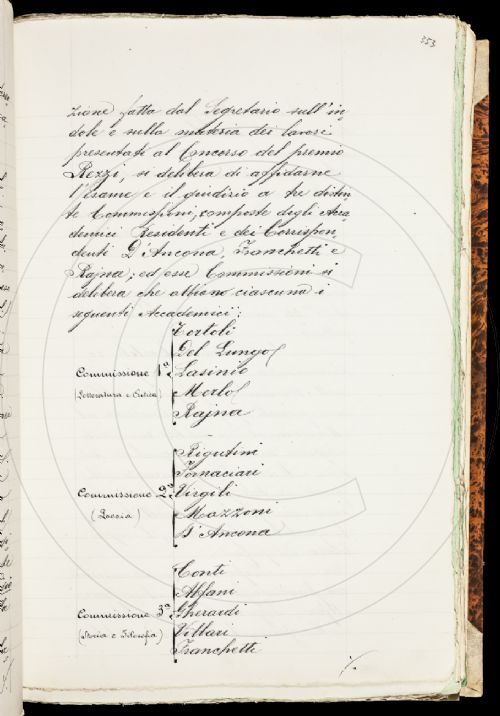 353
zione fatta dal Segretario sull'in
dole e sulla materia dei lavori
presentati al Concorso del premio
Rezzi, si delibera di affidarne
l'esame e il giudizio a tre distin
te Commissioni, composte degli Acca
demici Residenti e dei Corrispon
denti D'Ancona, Franchetti e
Rajna; ed esse Commissioni si
delibera che abbiano ciascuna i
seguenti Accademici:
Tortoli
Del Lungo
Commissione 1ª Lasinio
(Letteratura e Critica) Merlo
Rajna
Rigutini
Fornaciari
Commissione 2ª Virgili
(Poesia) Mazzoni
D'Ancona
Conti
Alfani
Commissione 3ª Gherardi
(Storia e Filosofia) Villari
Franchetti
./.